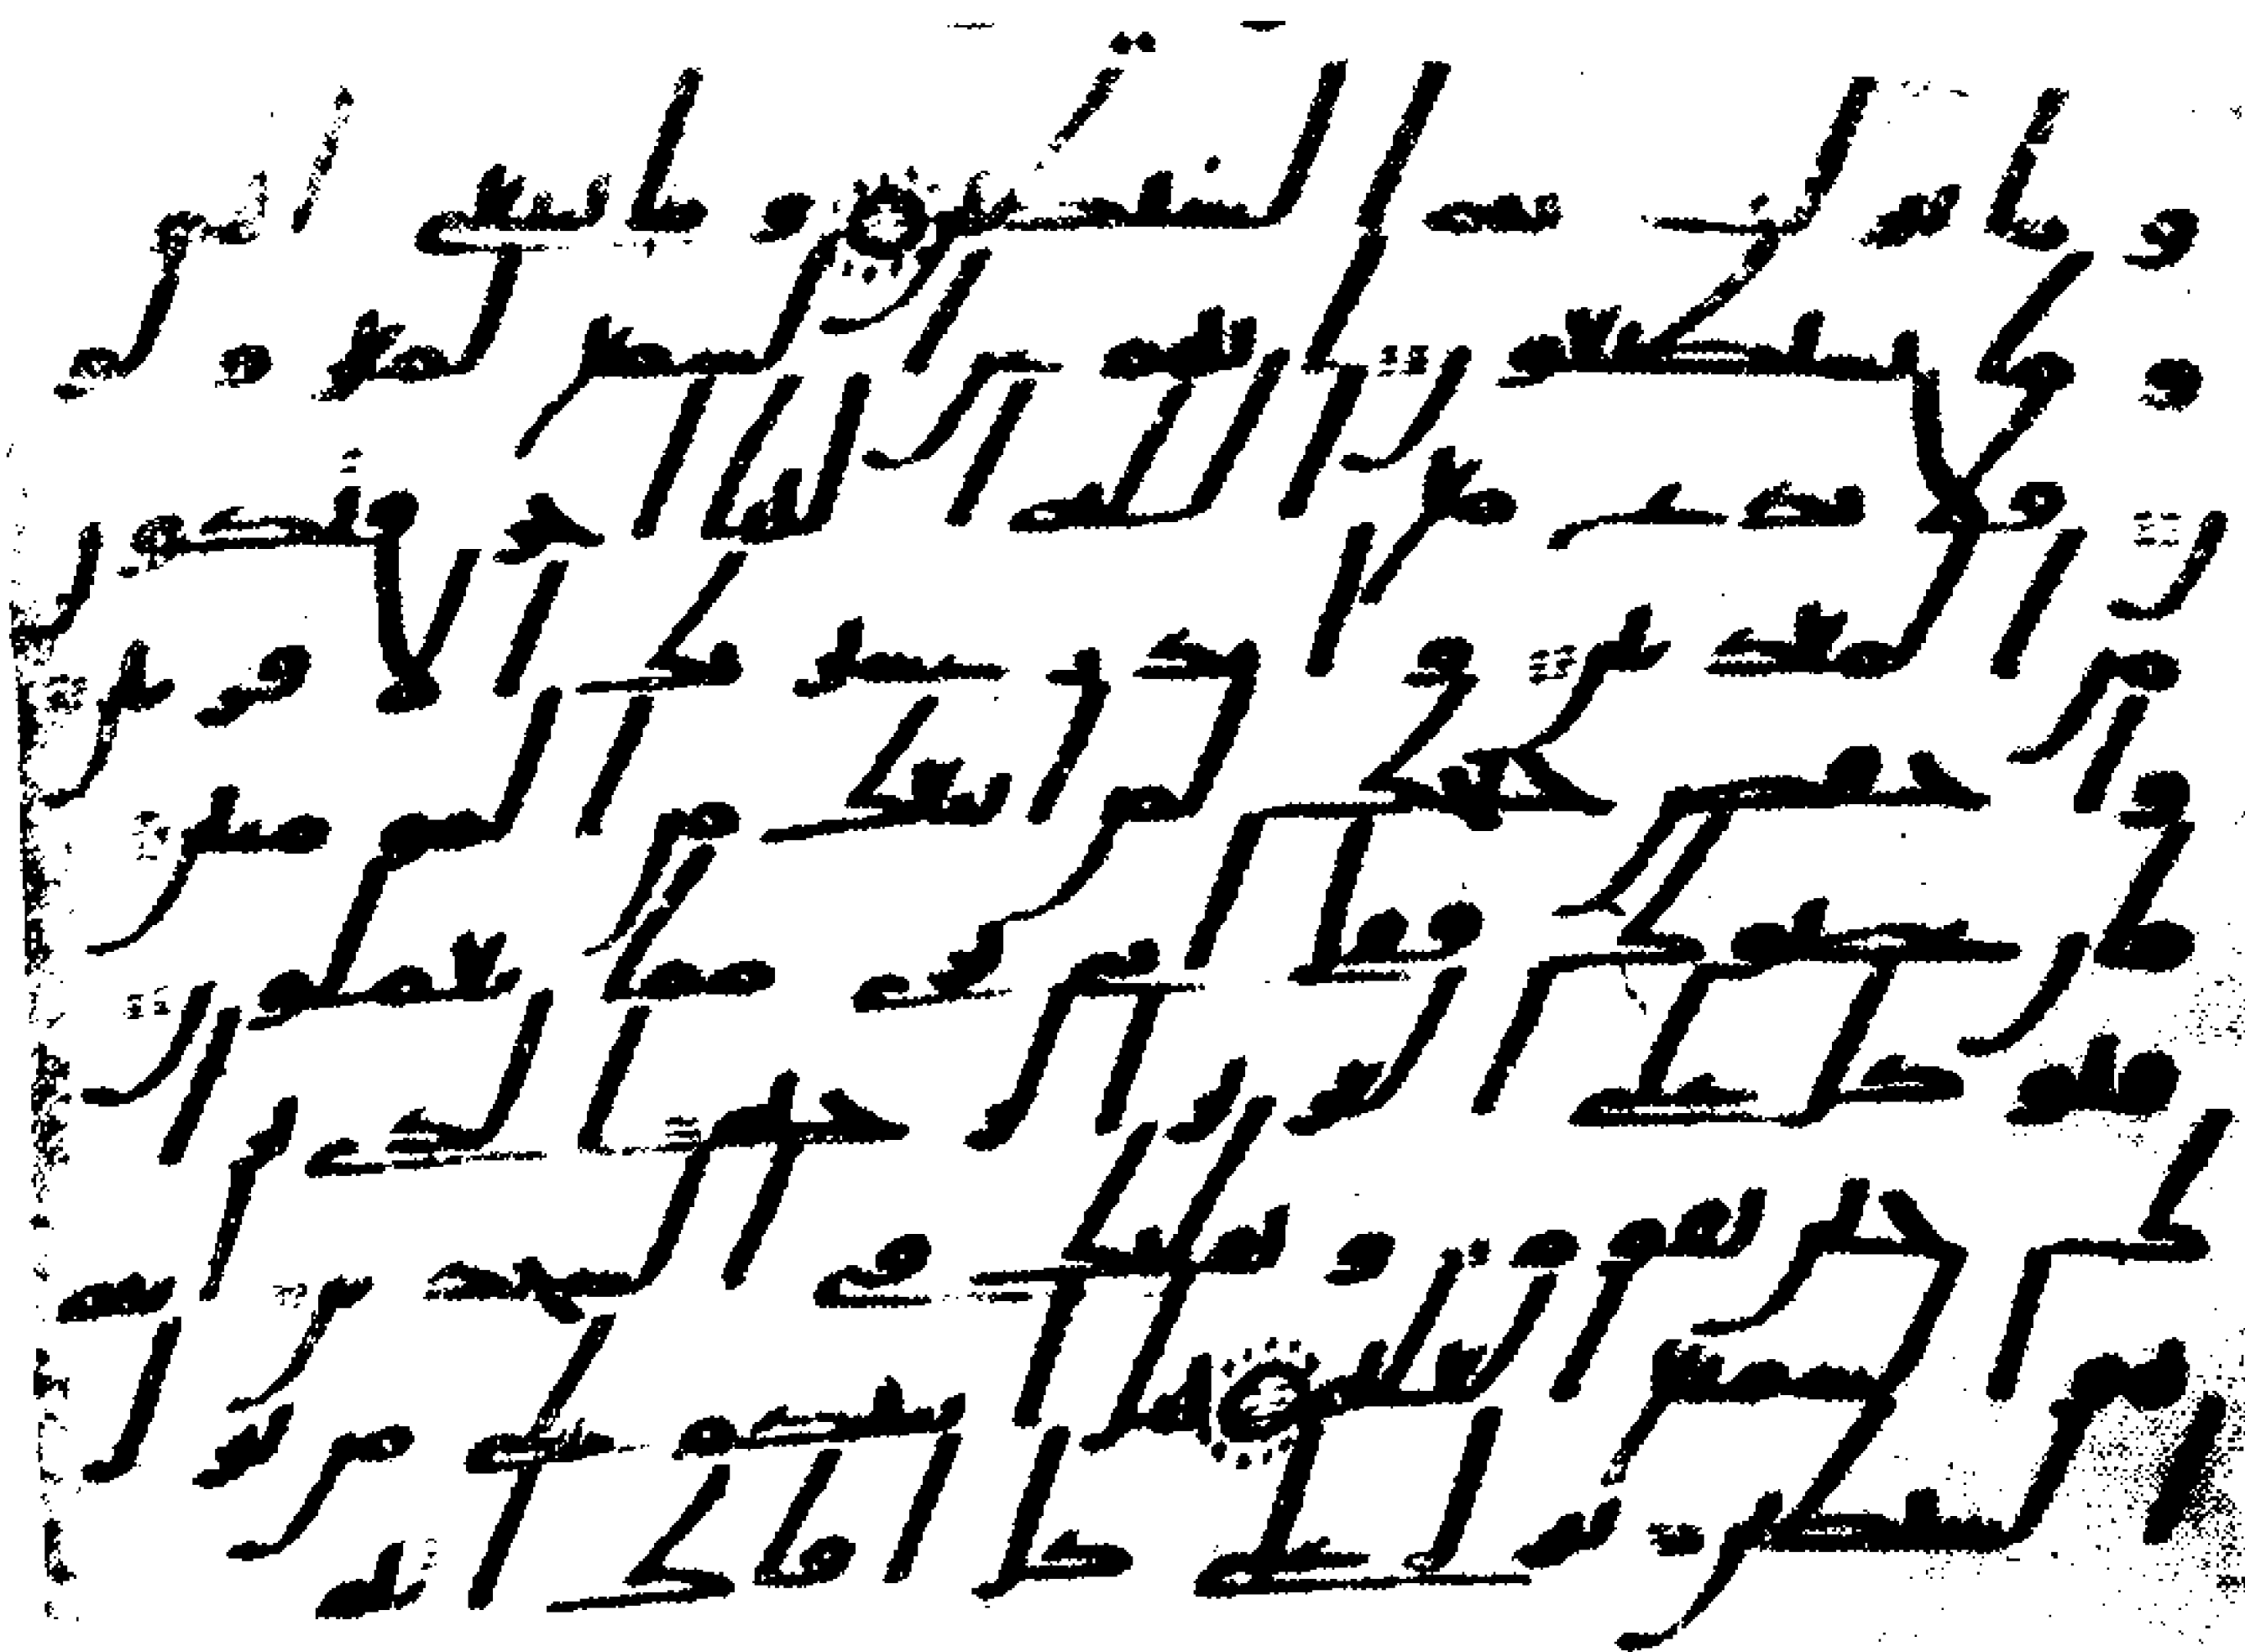 و ما تنزلت به الشيطين و ما ينبغى لهم
و ما يستطيعو ن انهم عن السمع لمعزولو
ن فلا تدع مع الله الها اخر فتكو ن
من المعذبين و انذر عشيرتك الا قر بين
و اخفض جناحك لمن اتبعك من المومنين
فا ن عصوك فقل انى برى مما تعملو ن
فتوكل على العز يز الر حيم الذى ير ا
ك حين تقوم و تقلبك فى السجد ين انه
هو السميع العليم هل انبئكم على من تنز ل
الشيطين تنز ل على كل افا ك اثيم